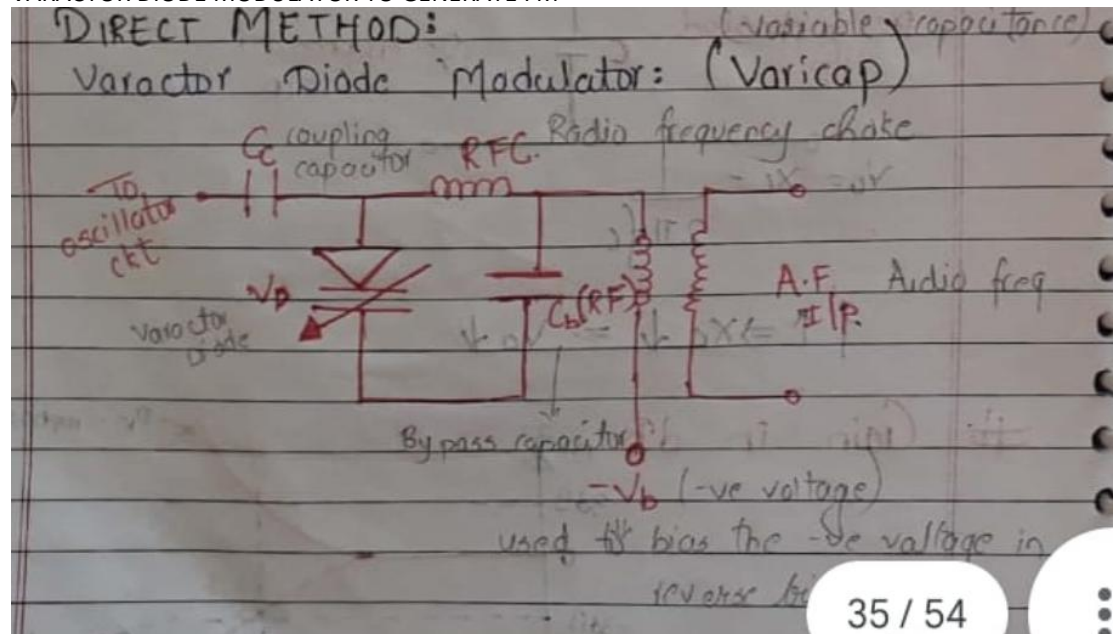 VARACTOR DIODE MODULATOR TO GENERATE FM
DIRECT METHOD:
(variable capacitance)
Varactor Diode Modulator: (Varicap)
Cc coupling capacitor
RFC. Radio frequency choke
To oscillator ckt
VD
Varactor Diode
Cb(RF)
A.F. I/P.
Audio freq
By pass capacitor
-Vb (-ve voltage)
used to bias the -ve voltage in
reverse
35 / 54